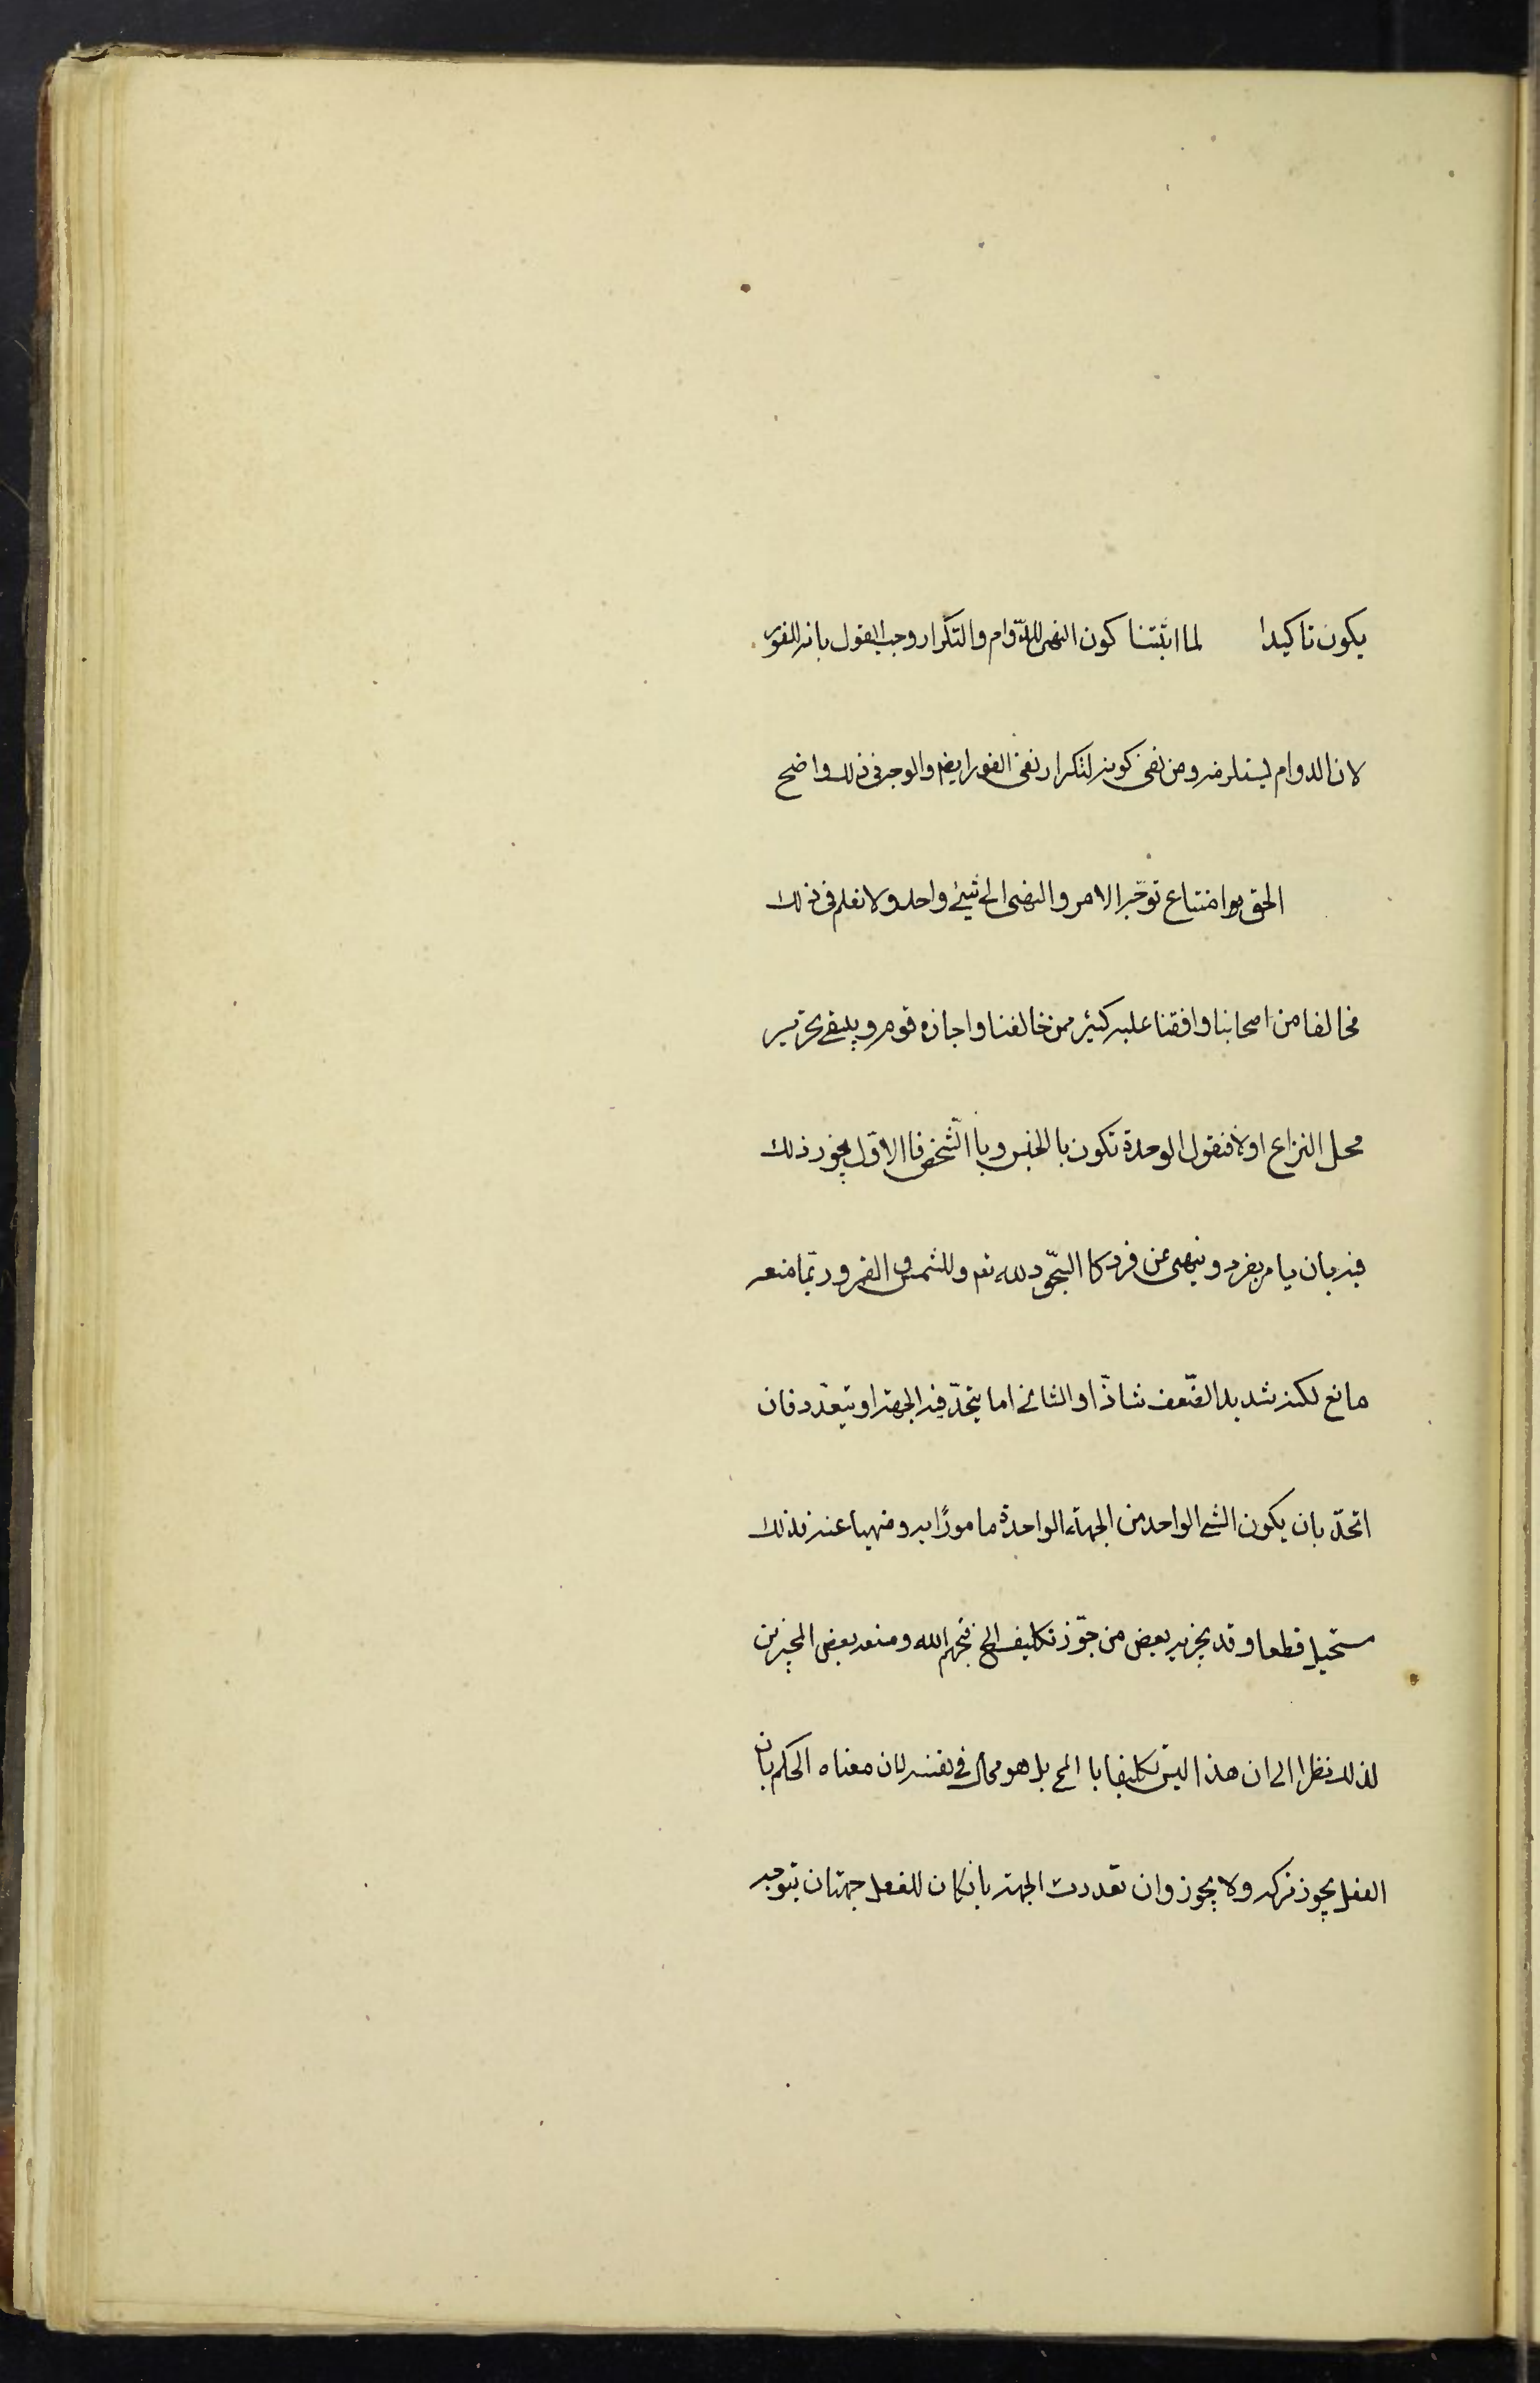 يكون تاكيدا لما اثبتنا كون النهى للدّوام والتكرار وجب القول بانه للفور
لان الدوام يستلزمه ومن نفى كونه لتكرار نفى الفور ايضم والوجه فى ذلك واضح
الحق هو امتناع توجّه الامر والنهى الى شيئ واحد ولا نعلم فى ذلك
مخالفا من اصحابنا وافقنا عليه كثير ممن خالفنا واجازه قوم وينبغى تحرير
محل النزاع اولا فنقول الوحدة تكون بالجنس وبا الشّخص فا الاوّل يجوز ذلك
فيه بان يامر بفرد وينهى عن فرد كا السّجود لله تعم وللشمس والقمر وربّما منعه
مانع لكنه شديد الضّعف شاذّ او الثانى اما يتحدّ فيه الجهة او يتعدّد فان
اتحدّ بان يكون الشى الواحد من الجهة الواحدة مامورًا به ومنهيا عنه فذلك
مستحيل قطعا وقد يجيزه بعض من جوّز تكليف المح قبحهم الله ومنعه بعض المجيزين
لذلك نظرا الى ان هذا ليس تكليفا با المح بل هو محال فى نفسه لان معناه الحكم بان
الفعل يجوز تركه ولا يجوز وان تعددت الجهة بان كان للفعل جهتان يتوجه